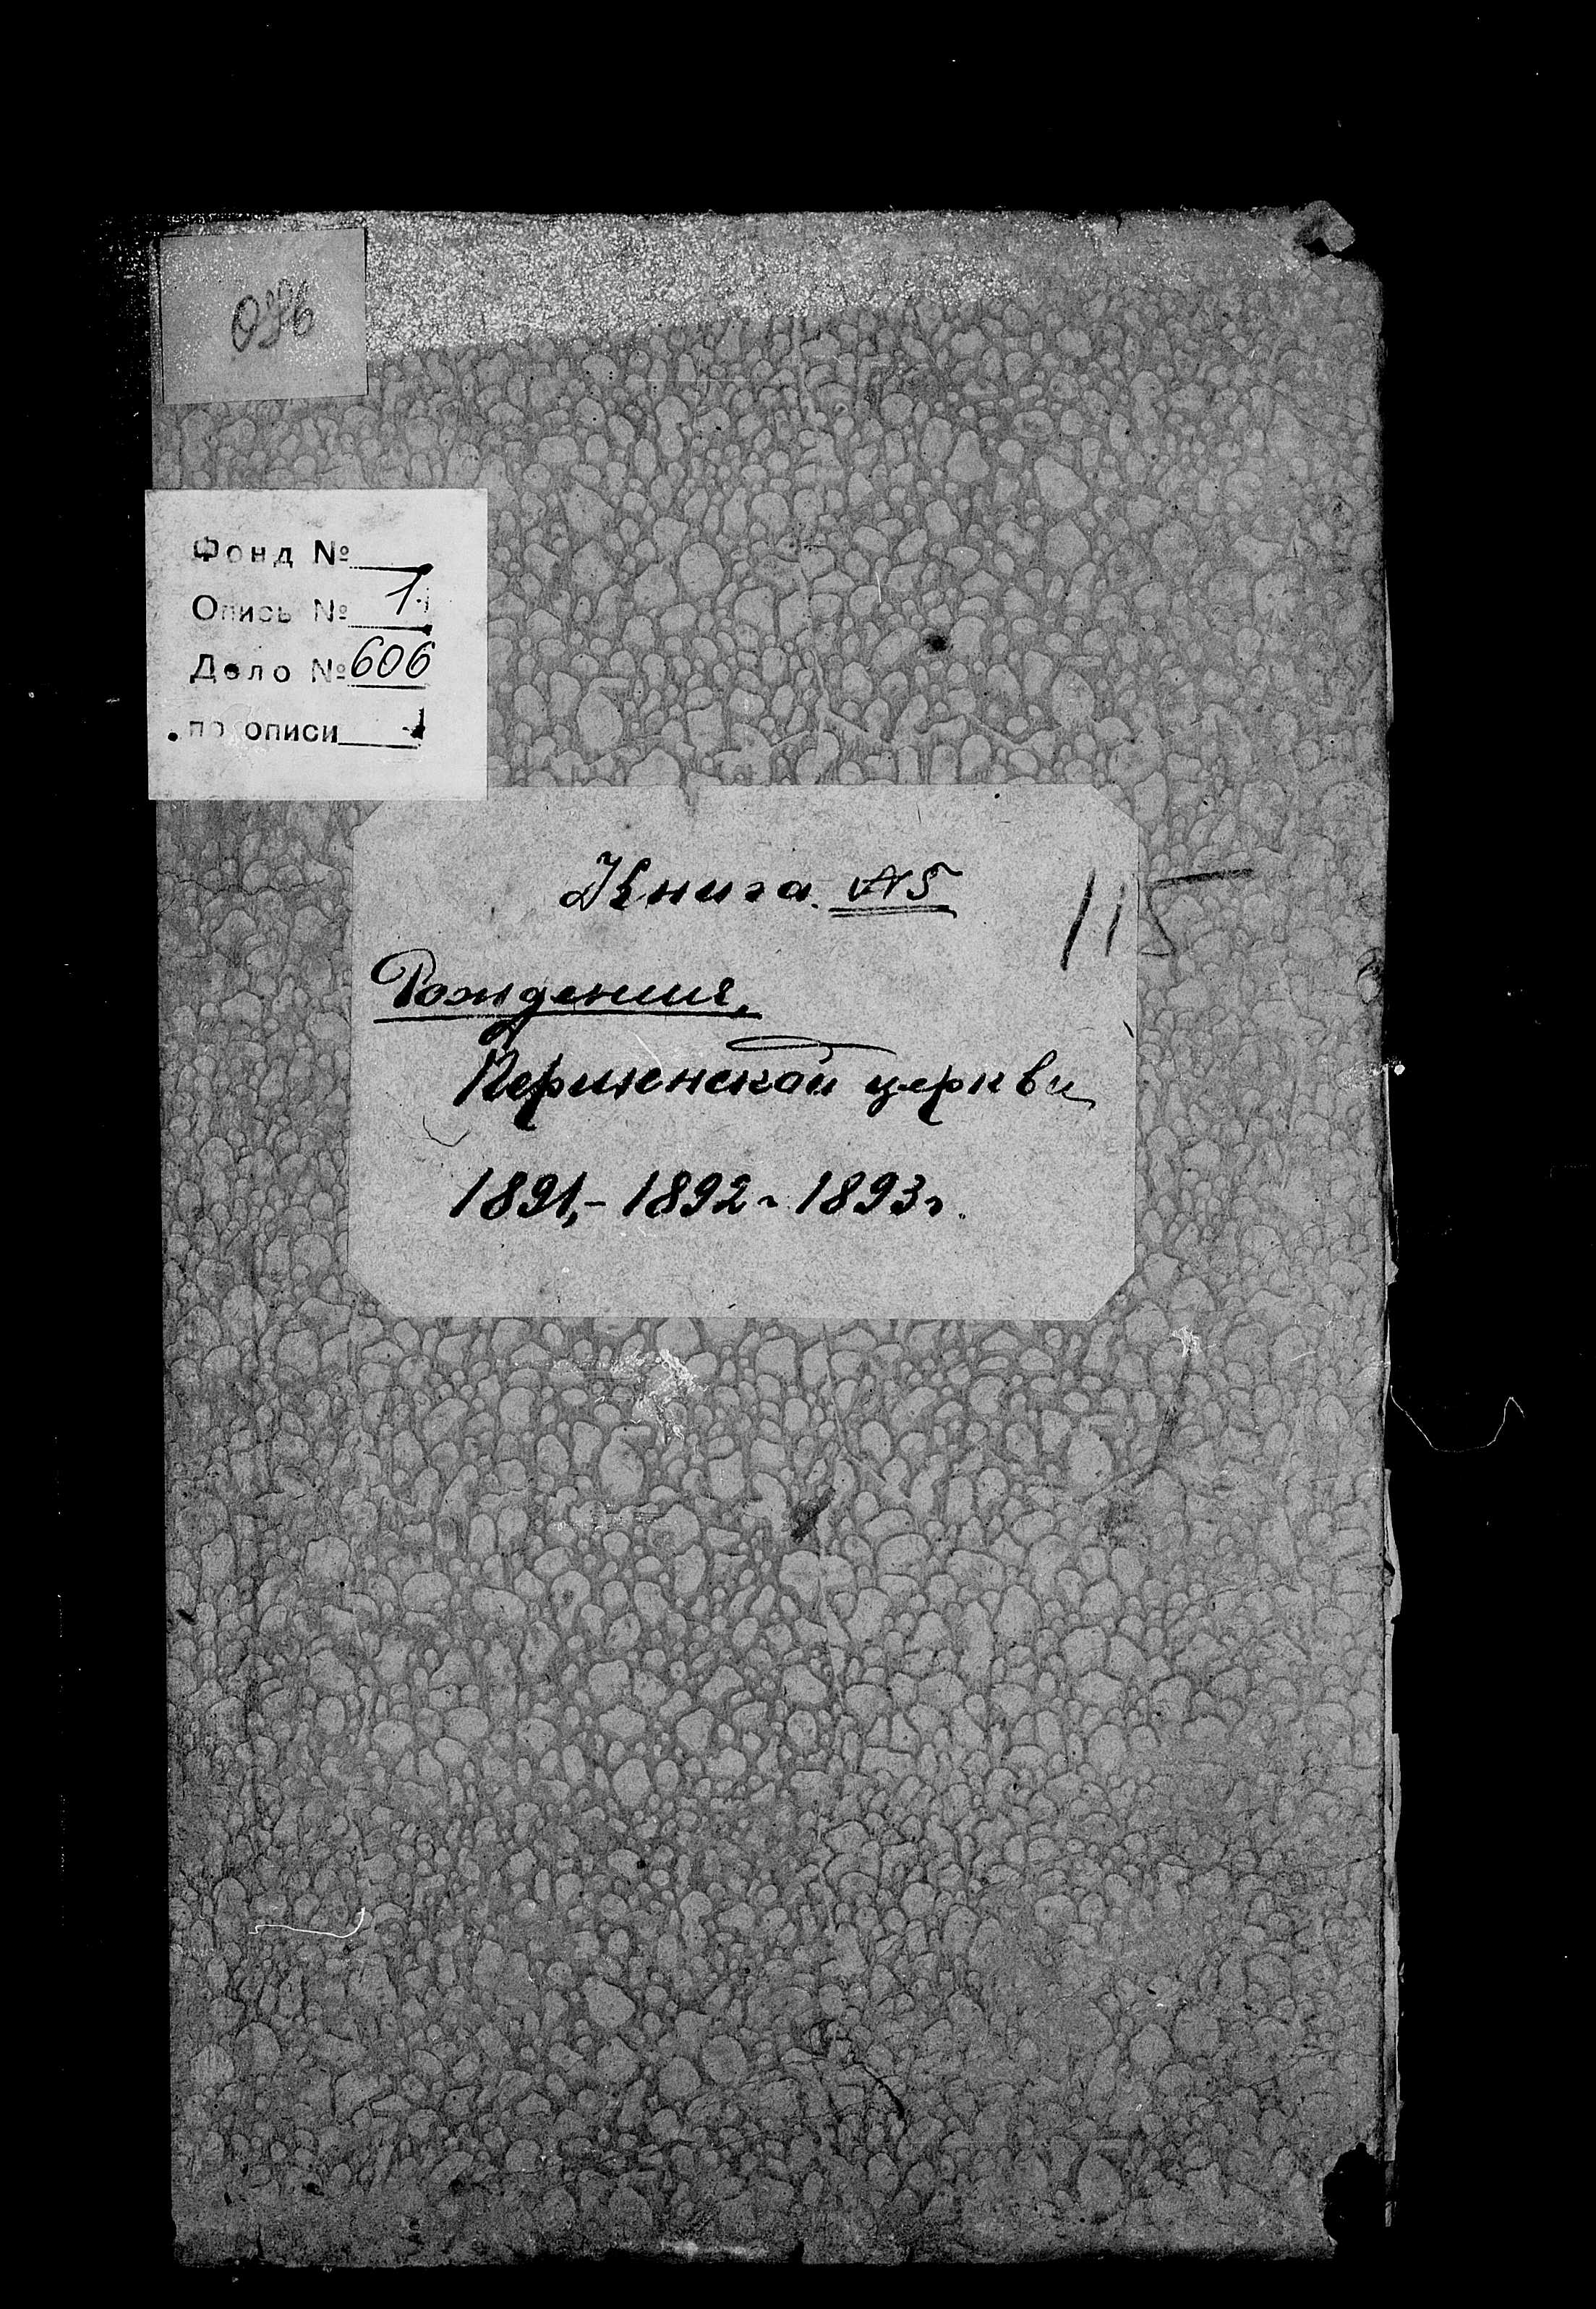 Фонд №
Опись № 1
Дело № 606
по описи
Книга №5
115
Рождения,
церкви
1891,-1892-1893г.